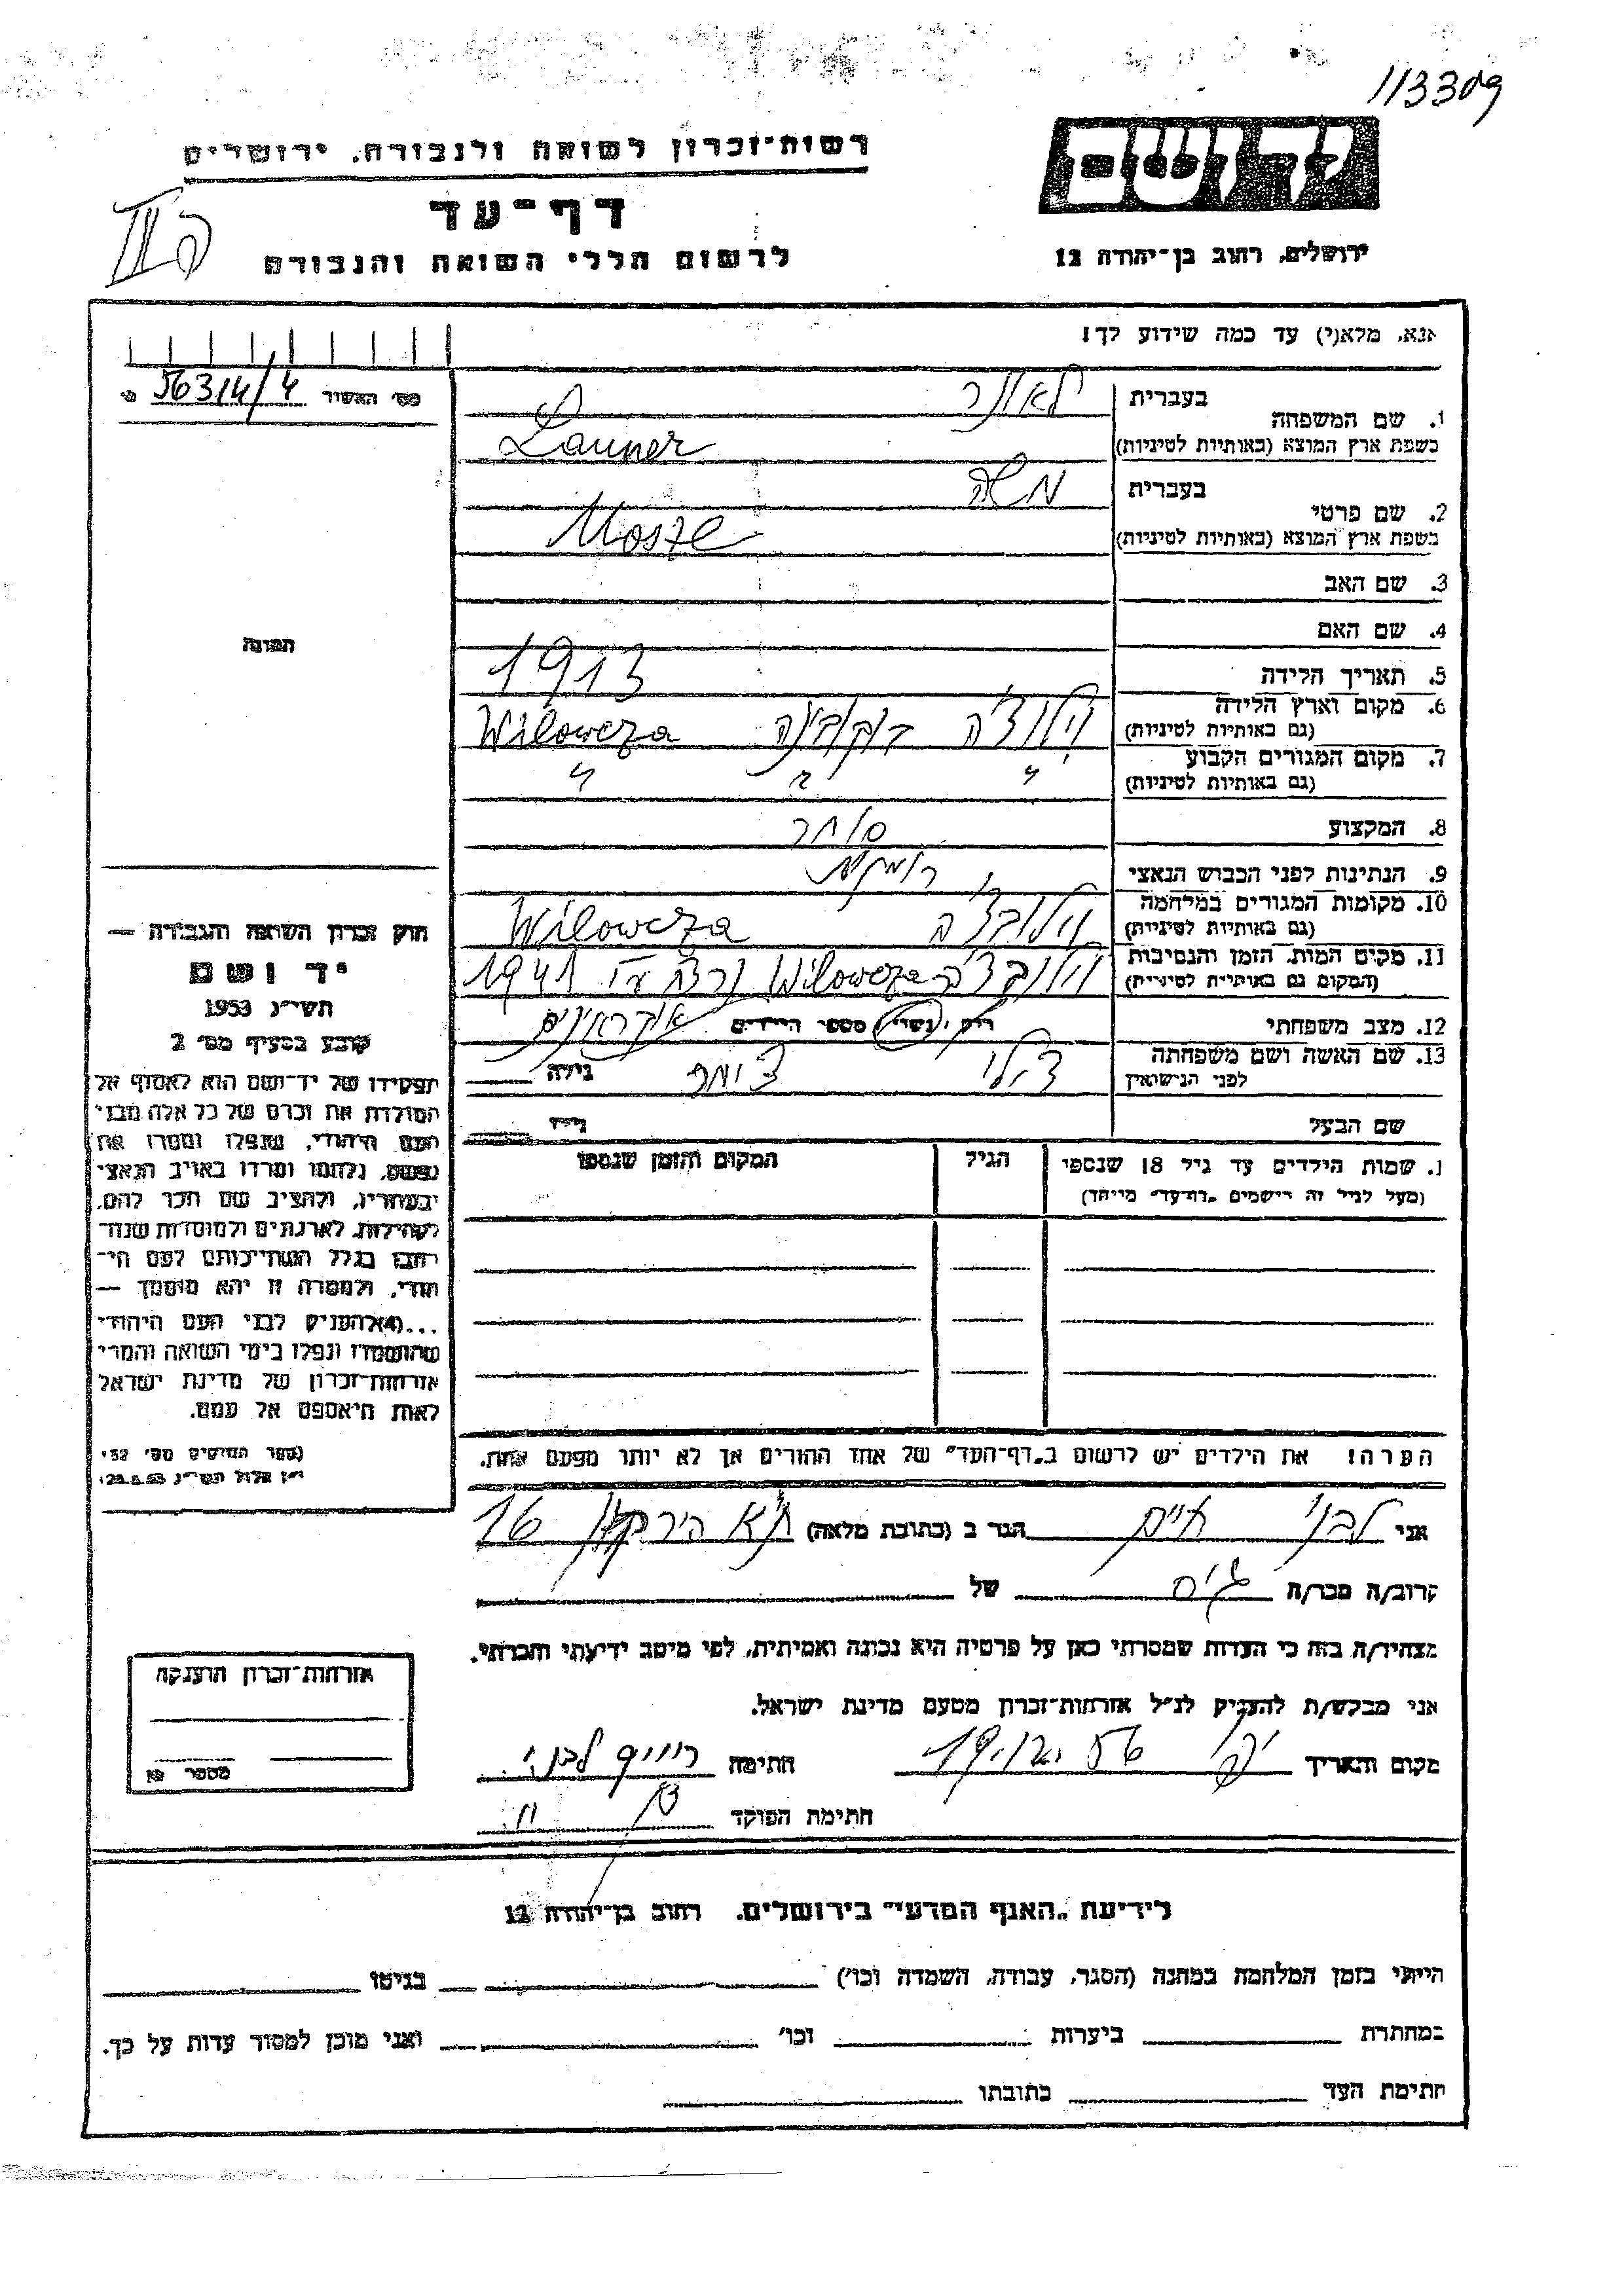 113309
רשות-זכרון לשואה ולגבורה, ירושלים
ידושם
דף-עד
לרשום חללי השואה והגבורה
ירושלים, רחוב בן-יהודה 12
אנא, מלא(י) עד כמה שידוע לך!
מס' האשיר 56314/4
1. שם המשפחה
בעברית לאונר
בשפת ארץ המוצא (באותיות לטיניות) Launer
2. שם פרטי
בעברית משה
בשפת ארץ המוצא (באותיות לטיניות) Mosze
3. שם האב
4. שם האם
5. תאריך הלידה 1913
6. מקום וארץ הלידה (גם באותיות לטיניות) Wilowcza
7. מקום המגורים הקבוע (גם באותיות לטיניות)
8. המקצוע סוחר
9. הנתינות לפני הכבוש הנאצי
10. מקומות המגורים במלחמה (גם באותיות לטיניות) Wilowcza
11. מקום המות, הזמן והנסיבות (המקום גם באותיות לטיניות) Wilowcza 1941
12. מצב משפחתי רוק/נשוי/ מספר הילדים
13. שם האשה ושם משפחתה לפני הנישואין גילה
שם הבעל גילו
התמונה
חוק זכרון השואה והגבורה —
יד ושם
תשי"ג 1953
קובע בסעיף מס' 2
תפקידו של יד-ושם הוא לאסוף אל
המולדת את זכרם של כל אלה מבני
העם היהודי, שנפלו ומסרו את
נפשם, נלחמו ומרדו באויב הנאצי
ובעוזריו, ולהציב שם וזכר להם,
לקהילות, לארגונים ולמוסדות שנח-
רבו בגלל השתייכותם לעם הי-
הודי, ולמטרה זו יהא מוסמך —
...(4) להעניק לבני העם היהודי
שהושמדו ונפלו בימי השואה והמרי
אזרחות-זכרון של מדינת ישראל
לאות היאספם אל עמם.
(ספר החוקים מס' 132
י"ז אלול תשי"ג 28.8.53)
שמות הילדים עד גיל 18 שנספו הגיל המקום והזמן שנספו
(מעל לגיל זה רישמים „דף-עד" מיוחד)
הערה! את הילדים יש לרשום ב„דף-העד" של אחד ההורים אך לא יותר מפעם אחת.
אני לבני חיים הגר ב (כתובת מלאה) ת"א הירקון 16
קרוב/ה מכר/ה גיס של
מצהיר/ה בזה כי העדות שמסרתי כאן על פרטיה היא נכונה ואמיתית, לפי מיטב ידיעתי והכרתי.
אני מבקש/ת להעניק לנ"ל אזרחות-זכרון מטעם מדינת ישראל.
מקום ותאריך חתימה לבני
חתימת הפוקד
אזרחות-זכרון הוענקה
מספר
לידיעת „האגף המדעי" בירושלים, רחוב בן-יהודה 12
הייתי בזמן המלחמה במחנה (הסגר, עבודה, השמדה וכו') בגיטו
במחתרת ביערות וכו' ואני מוכן למסור עדות על כך.
חתימת העד כתובתו